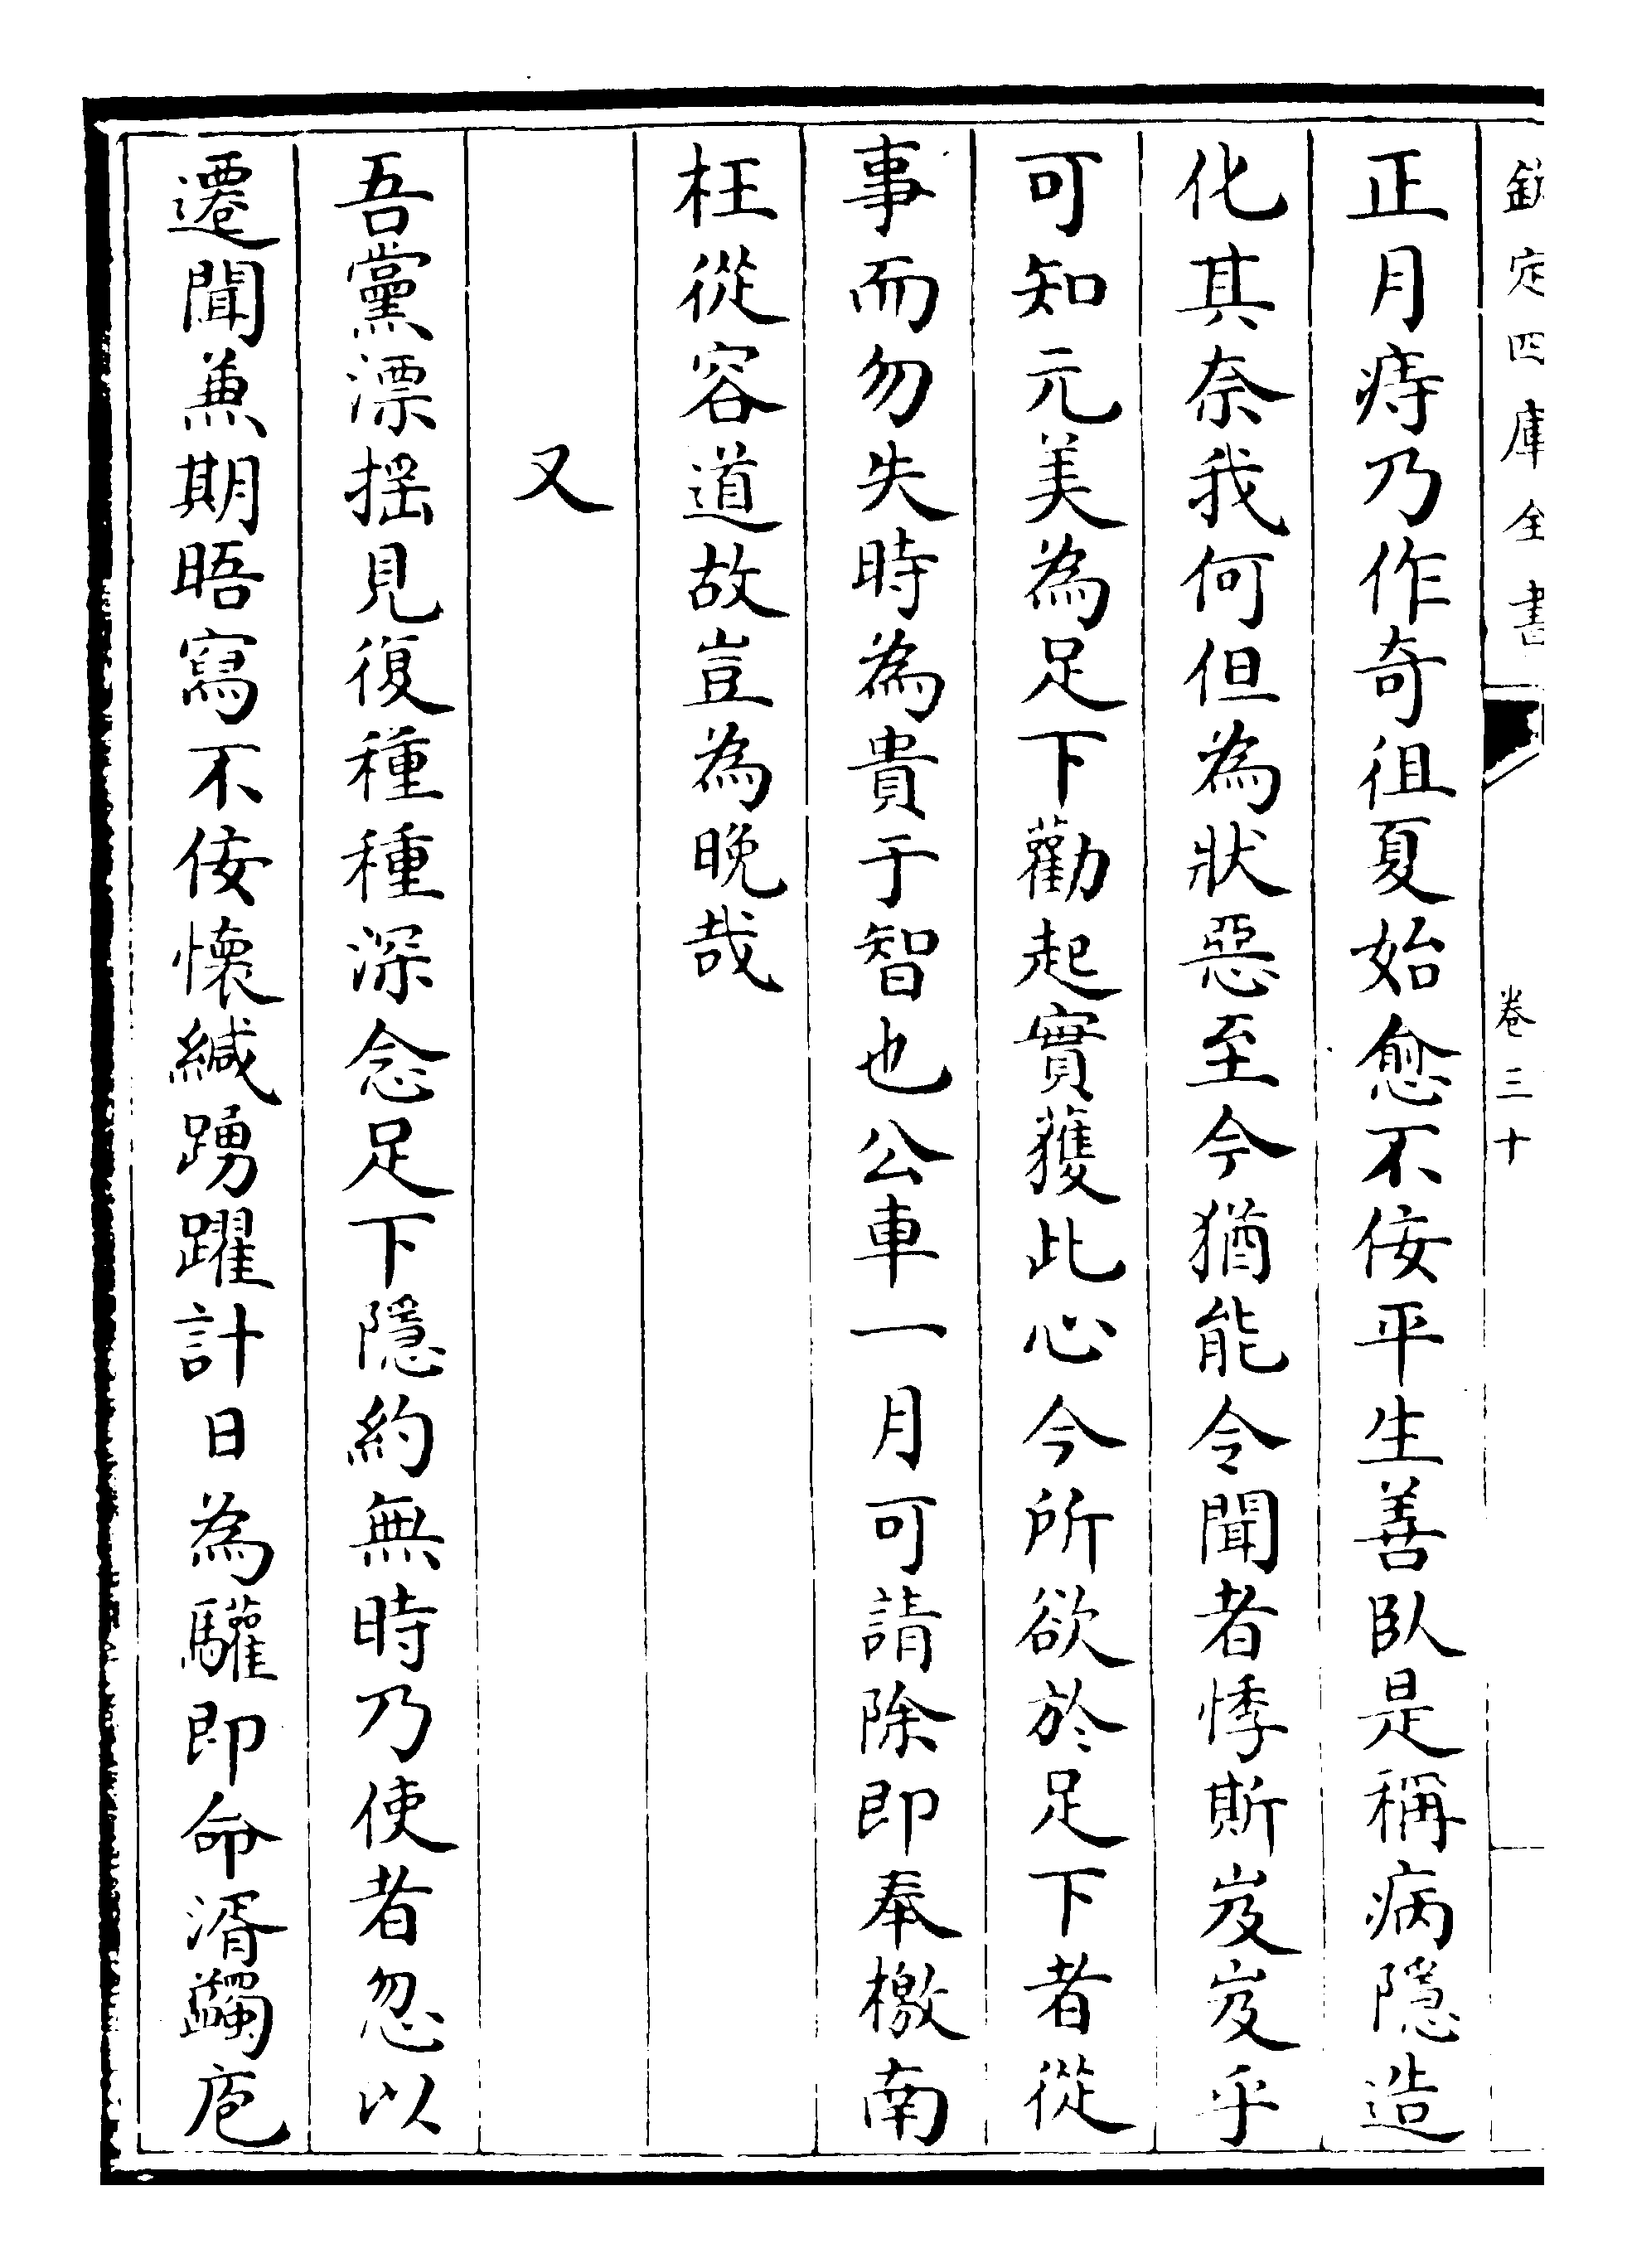 欽定四庫全書
卷三十
正月痔乃作奇徂夏始愈不佞平生善臥是稱病隱造
化其奈我何但為狀惡至今猶能令聞者悸斯岌岌乎
可知元美為足下勸起實獲此心今所欲於足下者從
事而勿失時為貴于智也公車一月可請除即奉檄南
枉從容道故豈為晚哉
又
吾黨漂揺見復種種深念足下隱約無時乃使者忽以
遷聞兼期晤寫不佞懷緘踴躍計日為驩即命湑蠲庖